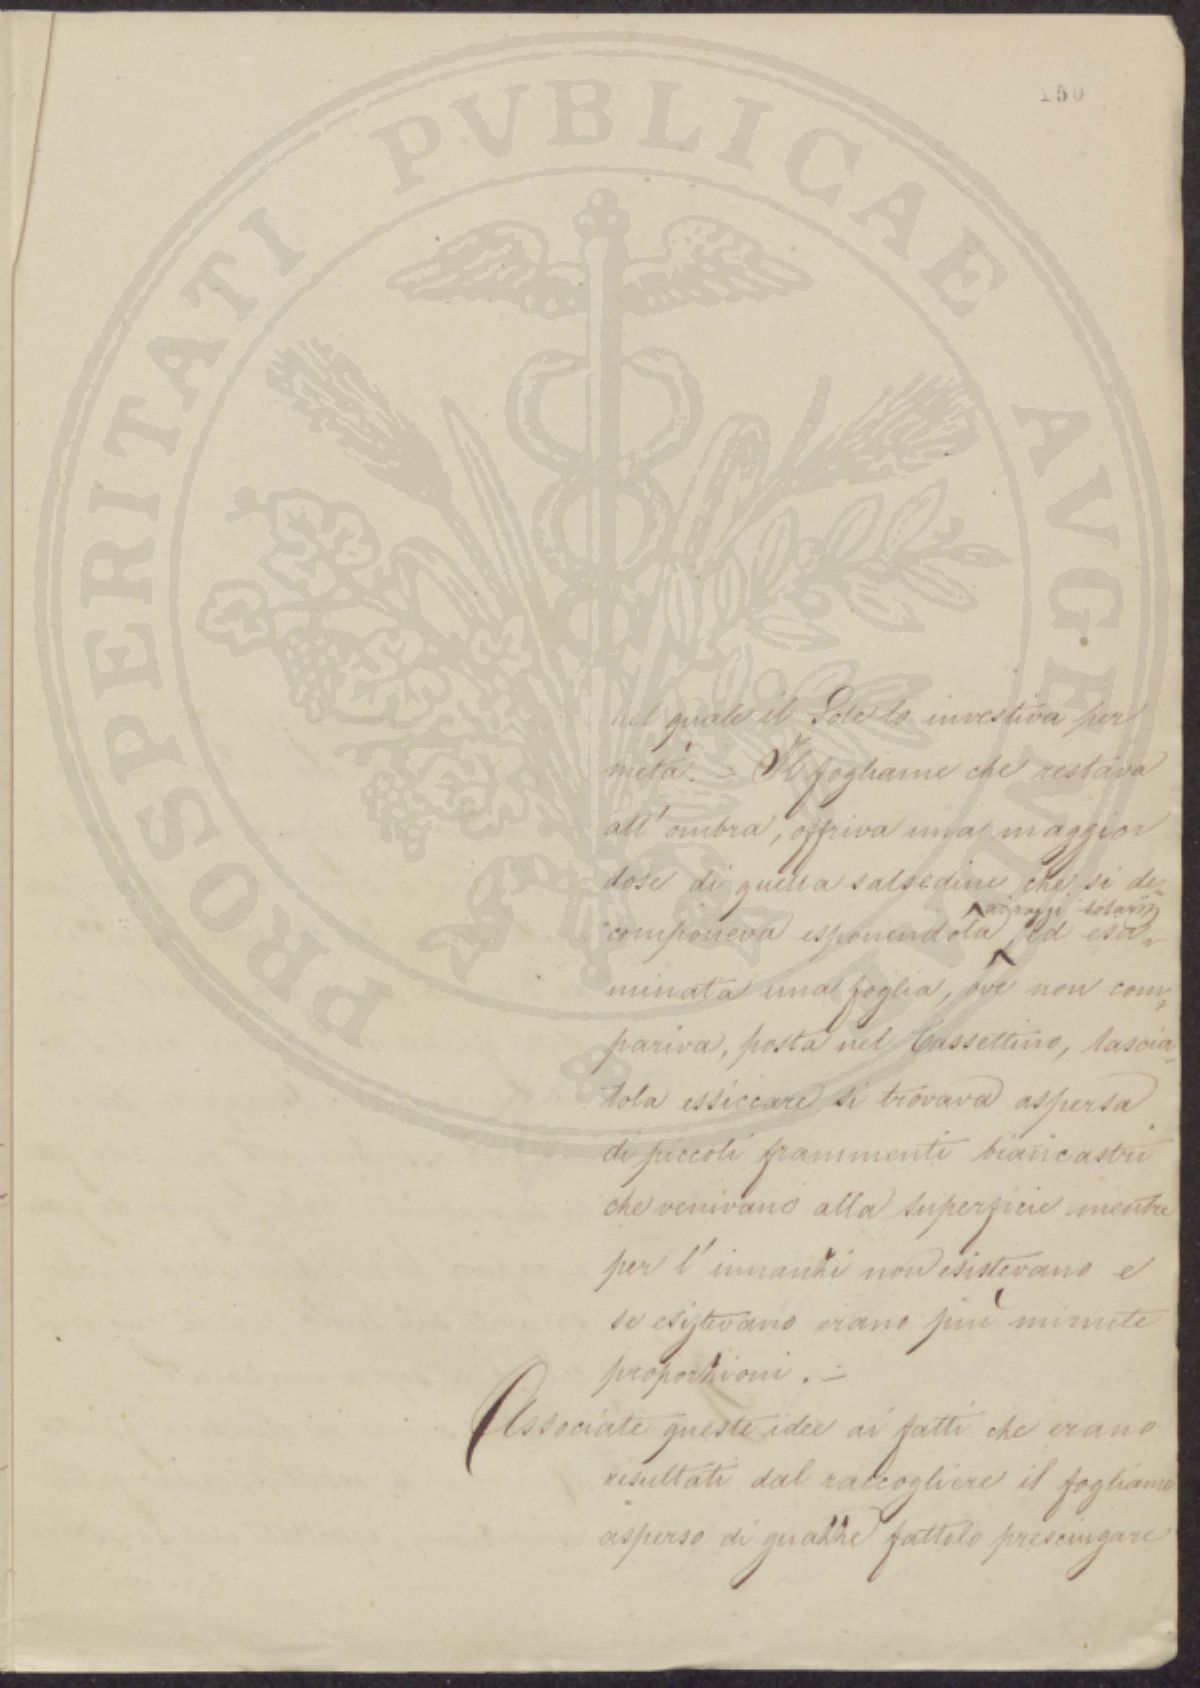 150
PROSPERITATI PVBLICAE AVGENDAE
nel quale il Sole lo investiva per
metà. = Il fogliame che restava
all'ombra, offriva una maggior
dose di quella salsedine che si de=
ai raggi solari
componeva esponendola, ed esa=
minata una foglia, ove non com=
pariva, posta nel Cassettino, lascia=
tola essiccare si trovava aspersa
di piccoli frammenti biancastri
che venivano alla superficie mentre
per l'innanzi non esistevano e
se esistevano erano più minute
proporzioni. =
Associate queste idee ai fatti che erano
resultati dal raccogliere il fogliame
asperso di guazze fattolo prescingare